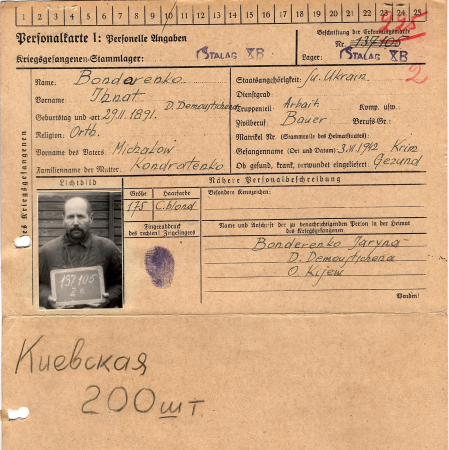 1 2 3 4 5 6 7 8 9 10 11 12 13 14 15 16 17 18 19 20 21 22 23 24 25
Personalkarte I: Personelle Angaben
Beschriftung der Erkennungsmarke
Nr. 137105
225
Kriegsgefangenen-Stammlager: STALAG XB
Lager: STALAG XB
2
des Kriegsgefangenen
Name: Bonderenko
Vorname: Ihnat
Geburtstag und -ort: 29.11.1891. D. Demoytschena
Religion: Orth.
Vorname des Vaters: Michalow
Familienname der Mutter: Kondratenko
Staatsangehörigkeit: Ukrain
Dienstgrad:
Truppenteil: Arbait Komp. usw.:
Zivilberuf: Bauer Berufs-Gr.:
Matrikel Nr. (Stammrolle des Heimatstaates):
Gefangennahme (Ort und Datum): 3.VI.1942 Krim
Ob gesund, krank, verwundet eingeliefert: Gezund
Lichtbild
Nähere Personalbeschreibung
Größe Haarfarbe
175 C.blond
Besondere Kennzeichen:
Fingerabdruck
des rechten Zeigefingers
137105
XB
Name und Anschrift der zu benachrichtigenden Person in der Heimat
des Kriegsgefangenen
Bonderenko Jaryna
D. Demoytschena
O. Kijew
Wenden!
Киевская
200 шт.